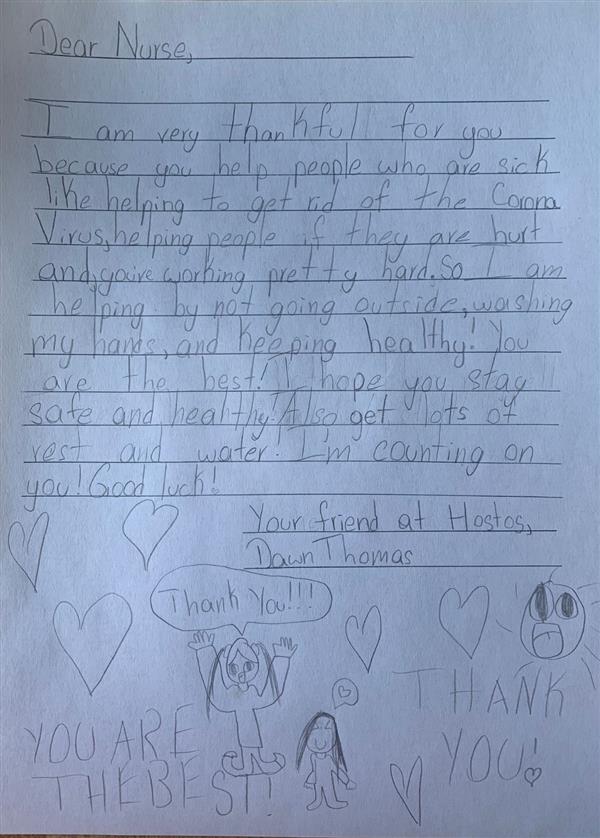 Dear Nurse,
I am very thankful for you
because you help people who are sick
like helping to get rid of the Corona
Virus, helping people if they are hurt
and, you're working pretty hard. So I am
helping by not going outside, washing
my hands, and keeping healthy! You
are the best! I hope you stay
safe and healthy! Also get lots of
rest and water! I'm counting on
you! Good luck!
Your friend at Hostos,
Dawn Thomas
Thank You!!!
YOU ARE
THE BEST!
THANK
YOU!